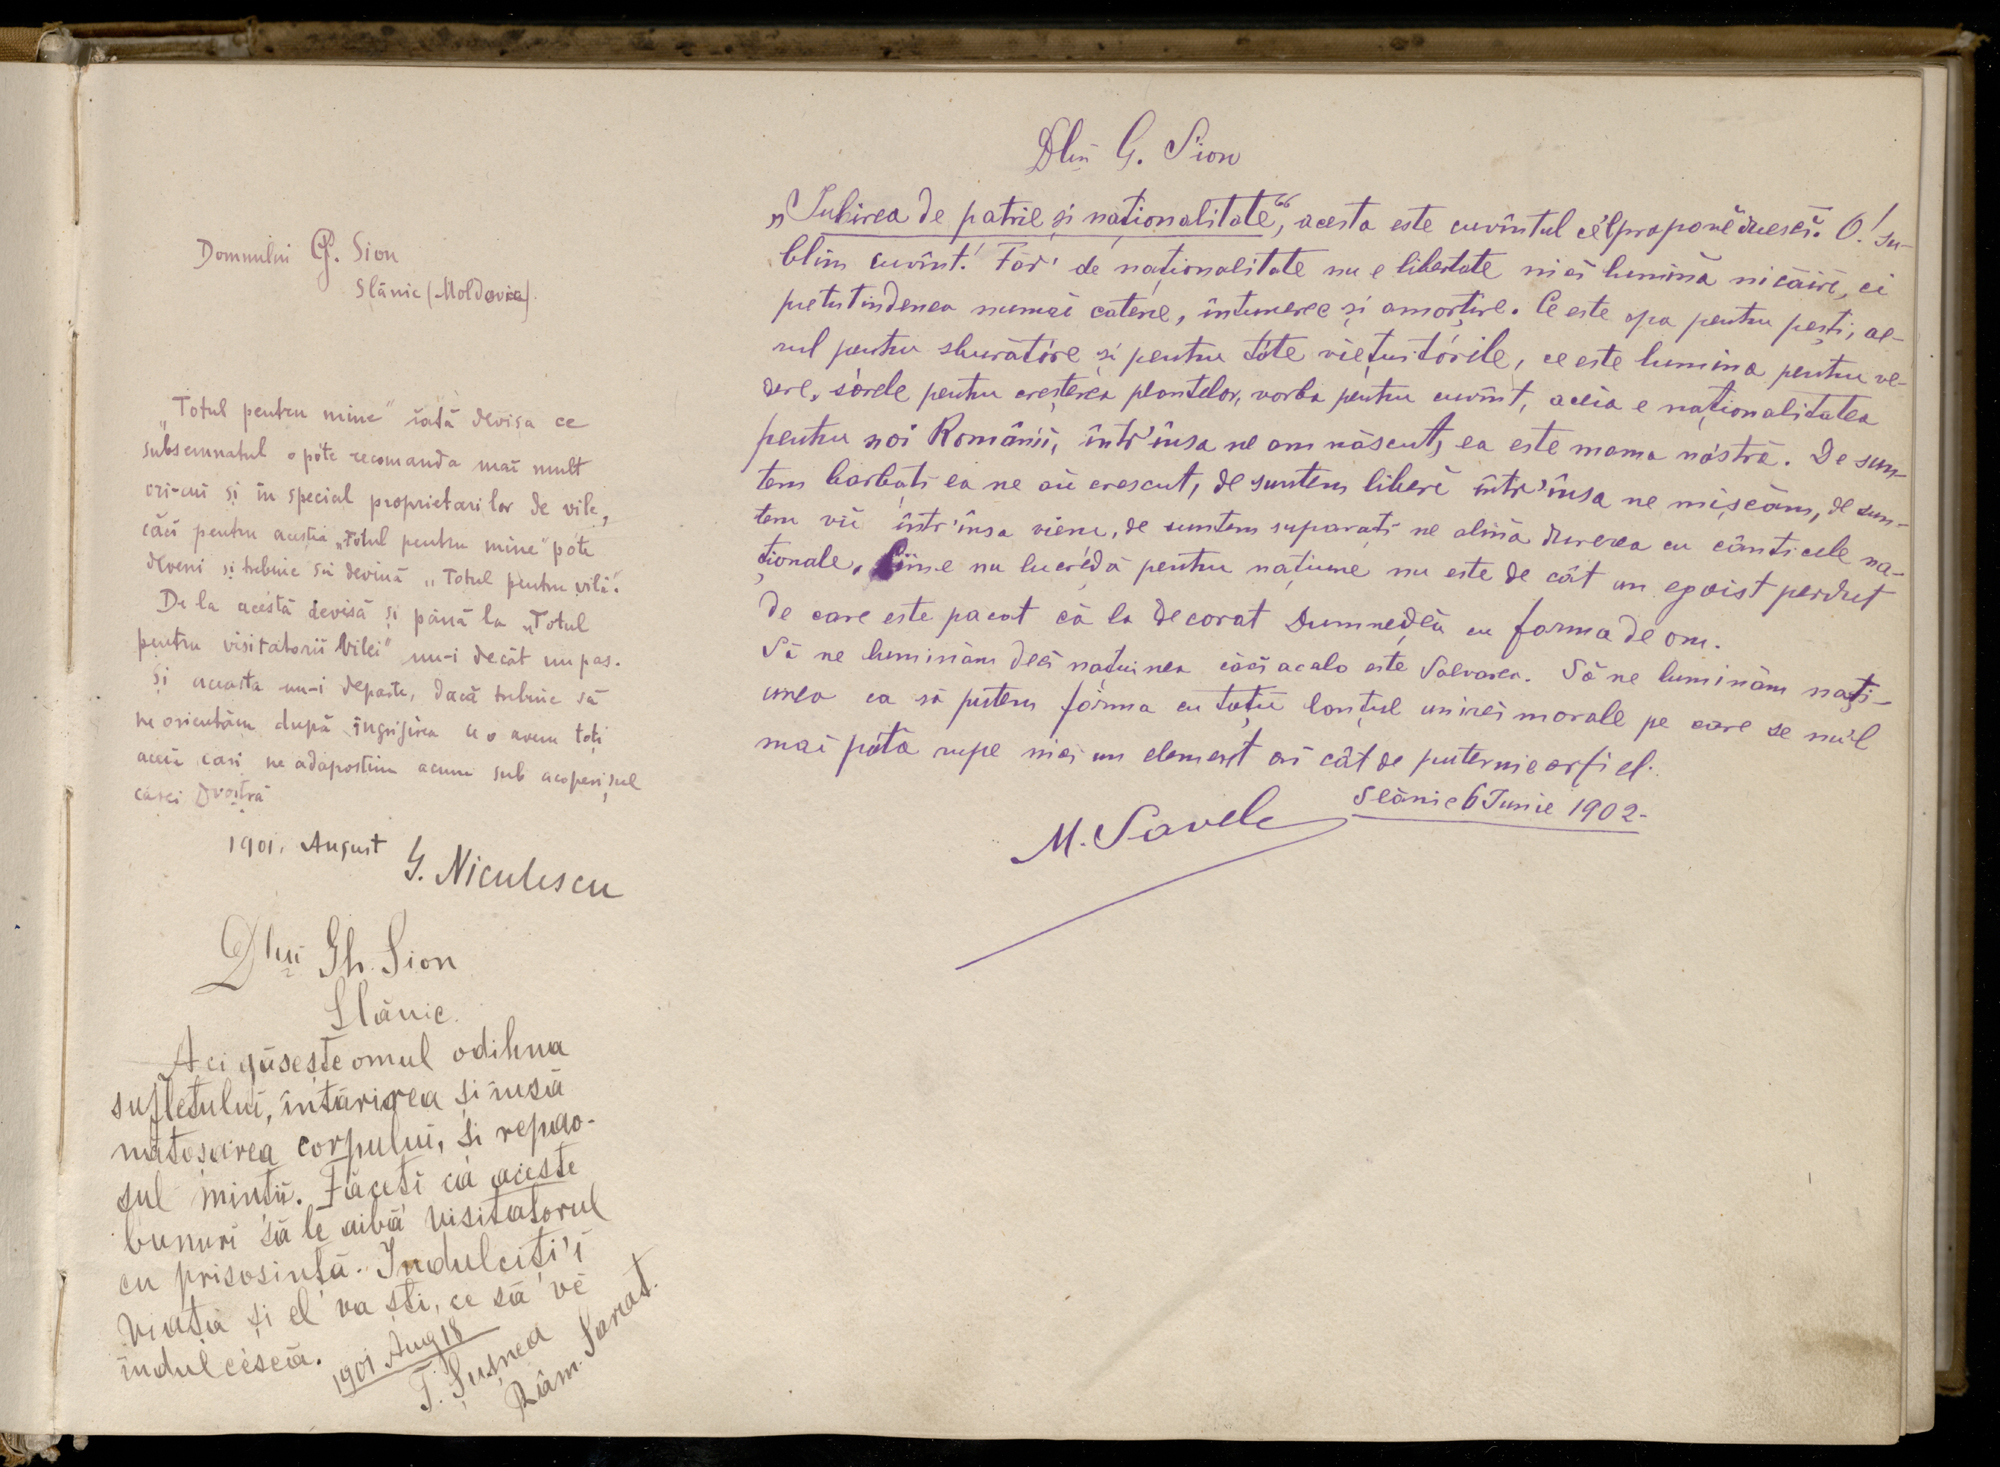 Domnului G. Sion
Slănic (Moldova).
„Totul pentru mine" iată devisa ce
subsemnatul o póte recomanda mai mult
ori-cui și în special proprietarilor de vile,
căci pentru aceștia „Totul pentru mine" póte
deveni și trebuie să devină „Totul pentru vilă".
De la acéstă devisă și până la „Totul
pentru visitatorii vilei" nu-i decât un pas.
Și aceasta nu-i departe, dacă trebuie să
ne orientăm după îngrijirea ce o avem toți
aceia cari ne adăpostim acum sub acoperișul
casei Dvóstră
1901. August
G. Niculescu
Dlui Gh. Sion
Slănic.
Aci găsește omul odihna
sufletului, întărirea și însă
nătoșarea corpului, și repao-
sul minții. Faceți ca aceste
bunuri să le aibă visitatorul
cu prisosință. Indulciți'i
viața și el va ști, ce să vĕ
îndulcéscă.
1901 Aug 18
T. Șușnea
Râm. Sarat.
Dlui G. Sion
„Iubirea de patrie și naționalitate", acesta este cuvîntul ce'l propovĕduesci. O! su-
blim cuvînt! Făr' de naționalitate nu e libertate nici lumină nicăirĭ, ci
pretutindenea numai catene, întunerec și amorțire. Ce este apa pentru pești, ae-
rul pentru sburătóre și pentru tóte viețuitórile, ce este lumina pentru ve-
dere, sórele pentru creșterea plantelor, vorba pentru cuvînt, aceia e naționalitatea
pentru noi Românii, într'însa ne am născut, ea este mama nóstră. De sun-
tem barbați ea ne aŭ crescut, de suntem liberi într'însa ne mișcăm, de sun-
tem vii într'însa viem, de suntem suparați ne alină durerea cu cânticele na-
ționale. Cine nu lucréḑă pentru națiune nu este de cât un egoist perdut
de care este pacat că la decorat Dumneḑĕŭ cu forma de om.
Să ne luminăm deci națiunea căci acolo este Salvarea. Să ne luminăm nați-
unea ca să putem forma cu toții lanțul unirei morale pe care se nu'l
mai póta rupe nici un element ori cât de puternic ar fi el.
M. Savel
Slănic 6 Junie 1902.